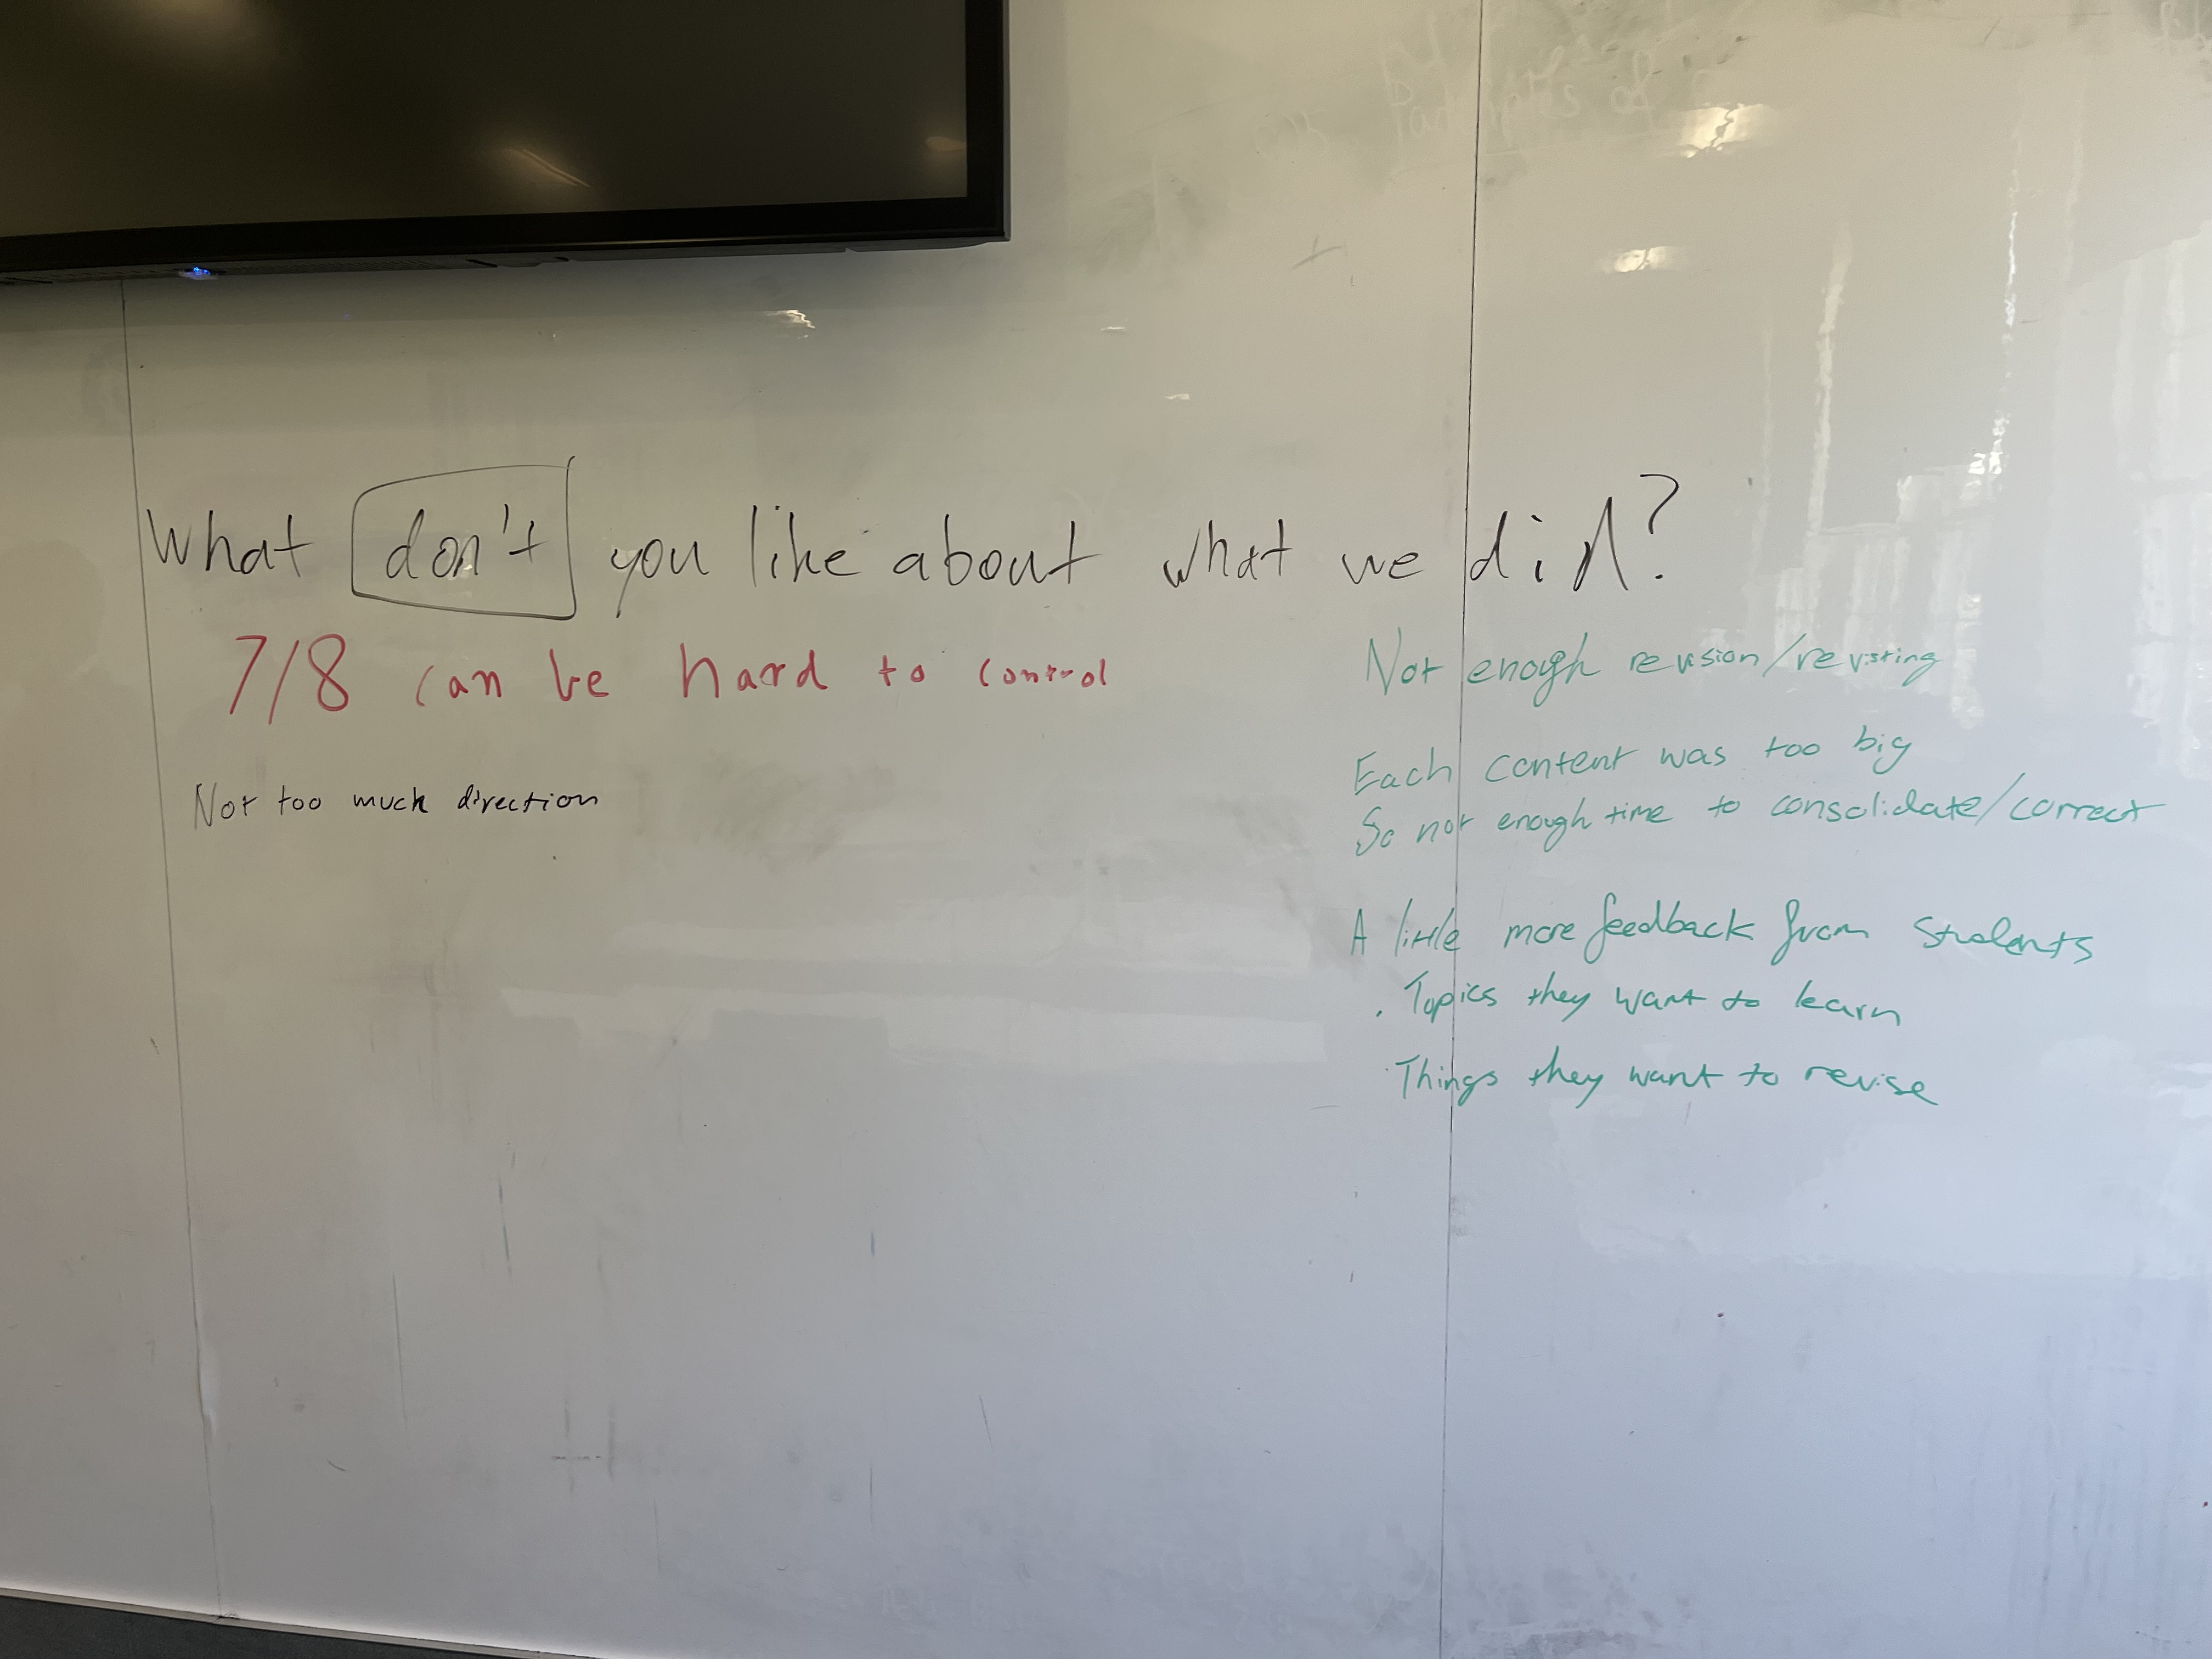 What don't you like about what we did?
7/8 can be hard to control
Not too much direction
Not enough revision/revisting
Each content was too big
So not enough time to consolidate/correct
A little more feedback from students
. Topics they want to learn
· Things they want to revise